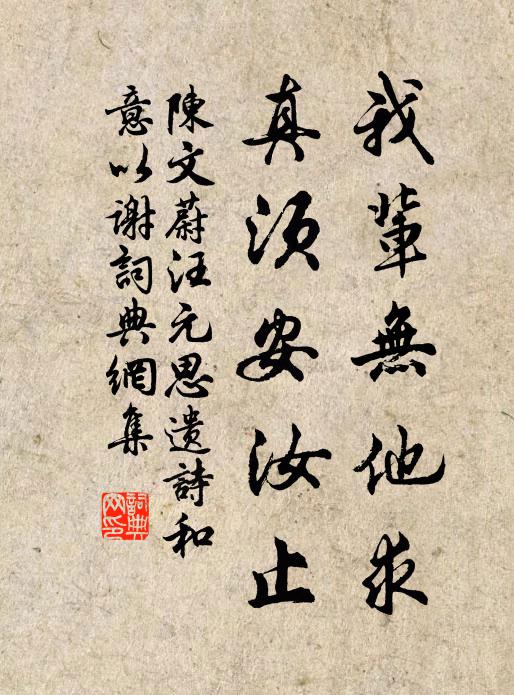 我輩無他求
真須安汝止
陳文蔚汪元思遺詩和
意以謝詞典網集
詞典
网印